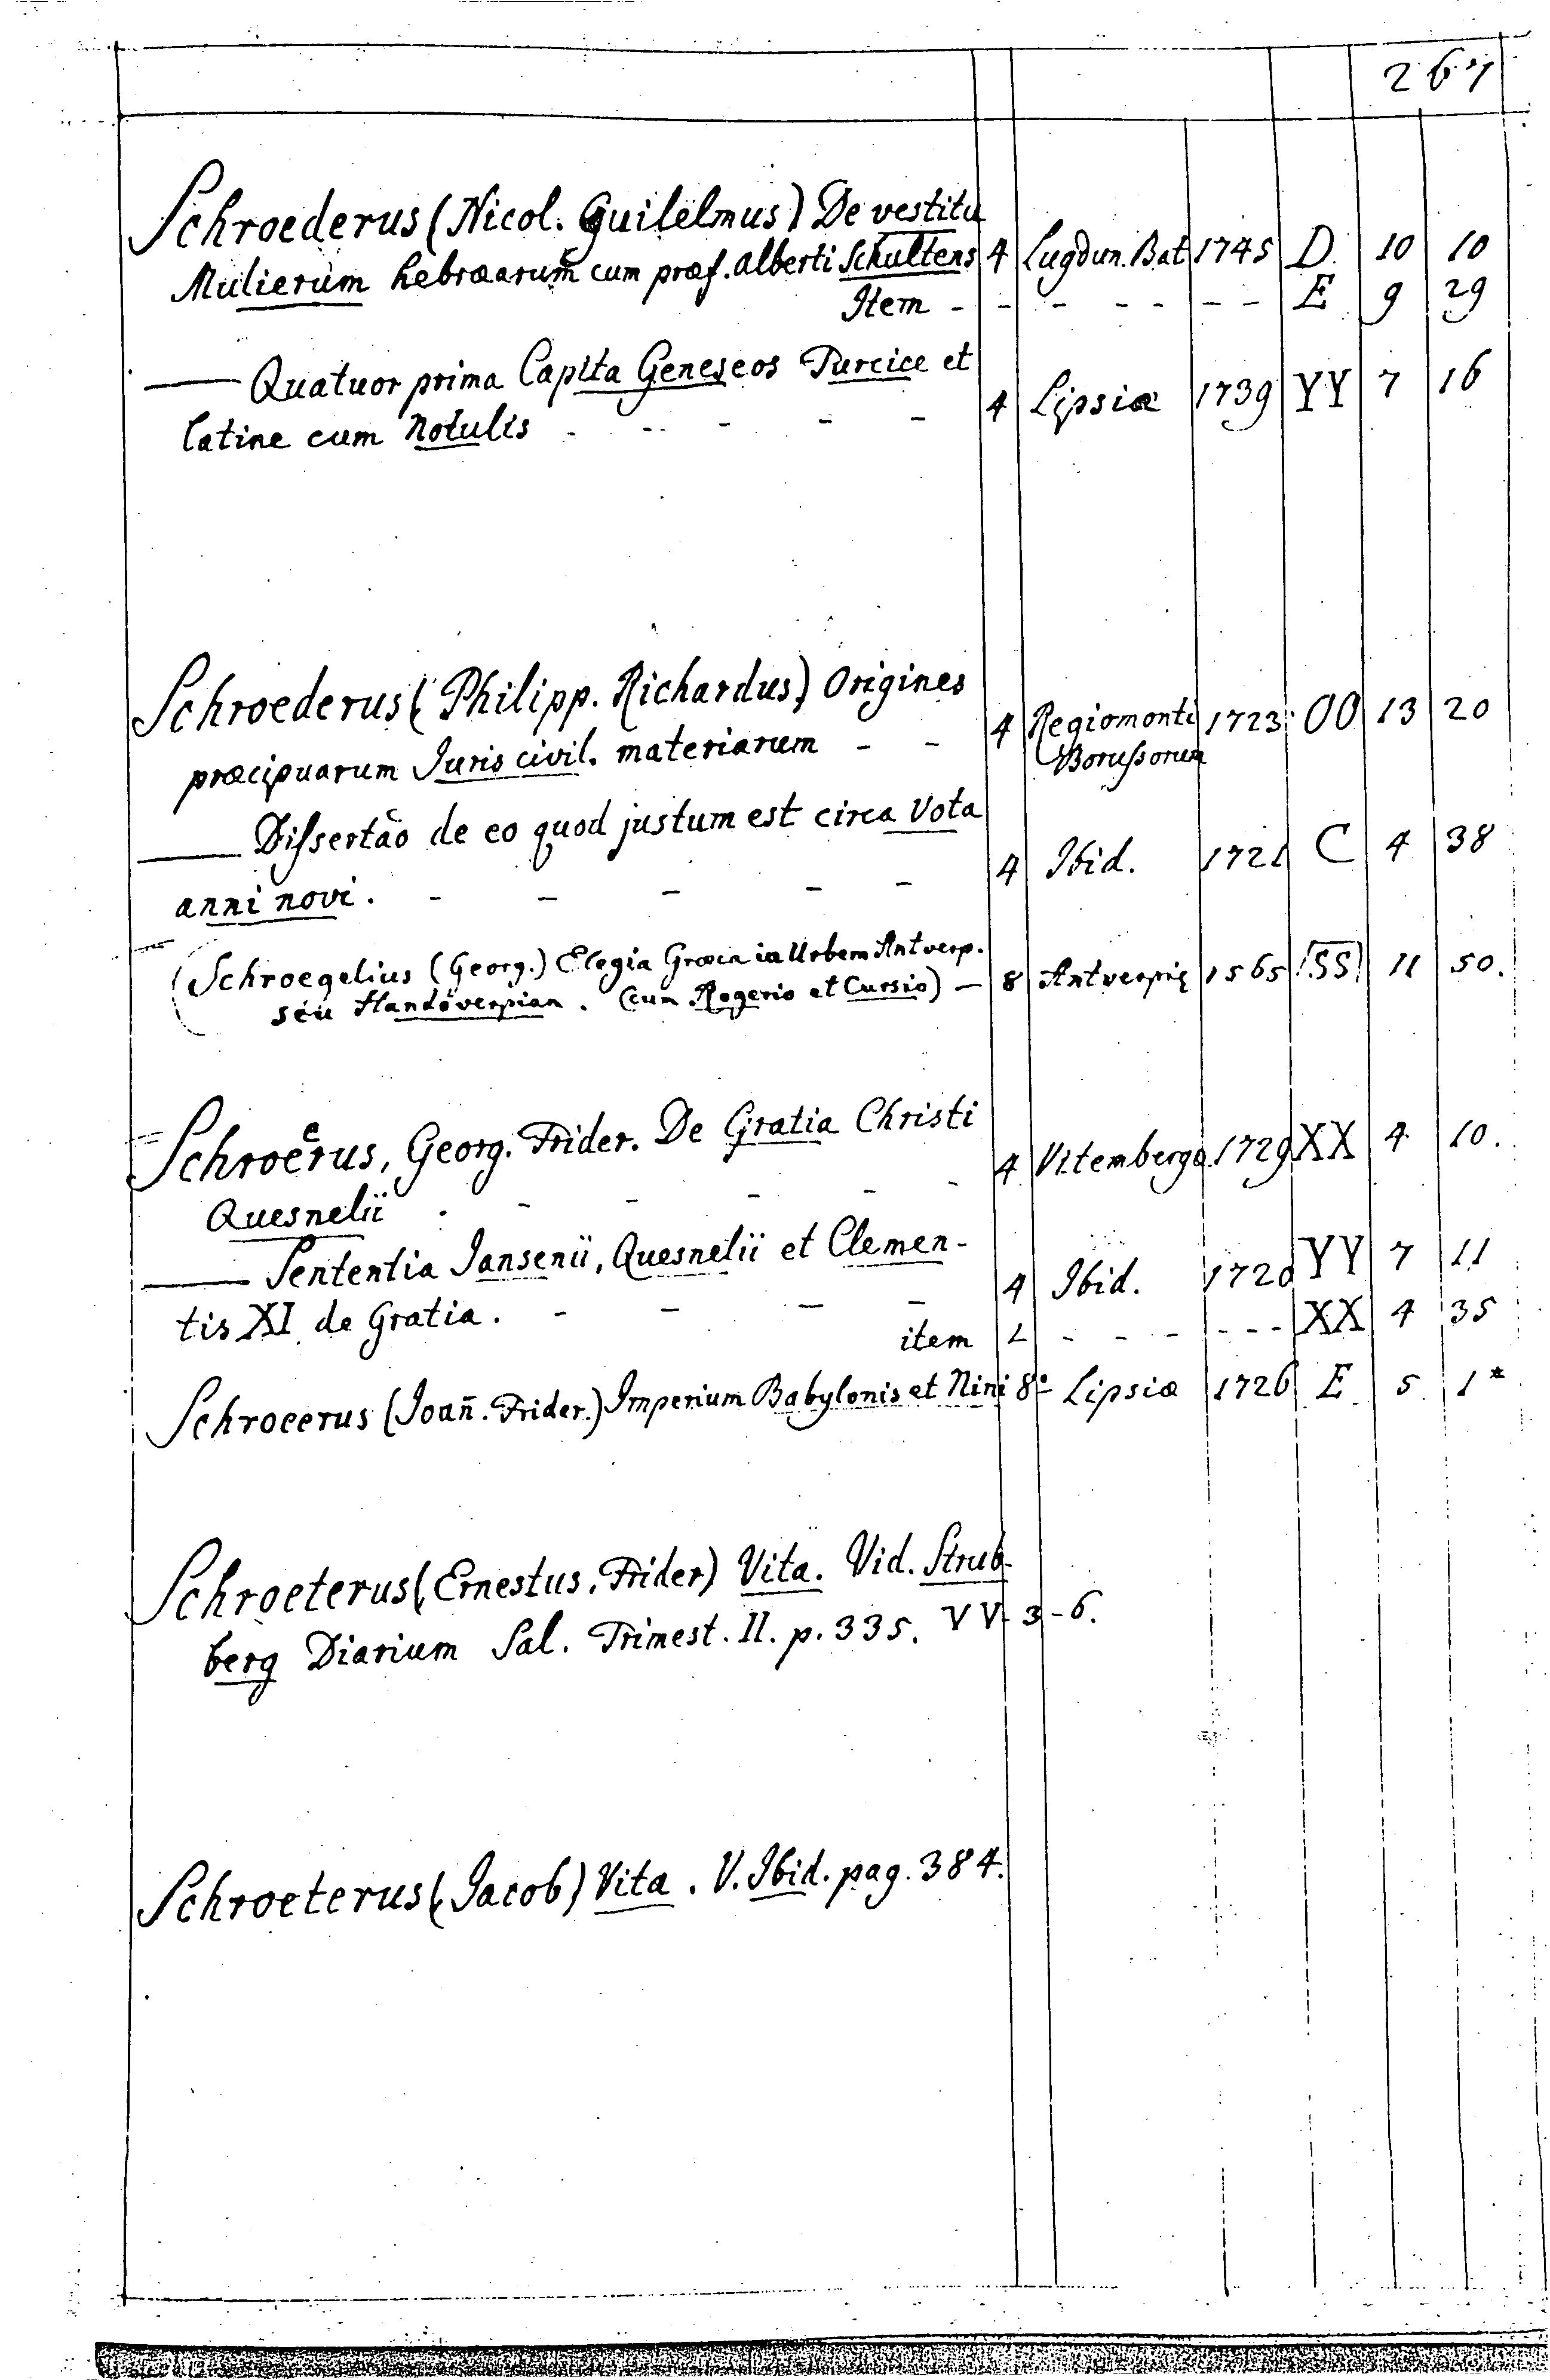 267
Schroederus (Nicol. Guilelmus) De vestitu
Mulierum hebræarum cum præf. Alberti Schultens 4 Lugdun. Bat 1745 D. 10 10
Item - - - - - - - E 9 29
—— Quatuor prima Capita Geneseos Turcice et
latine cum Notulis - - - - - 4 Lipsiæ 1739 YY 7 16
Schroederus (Philipp. Richardus) Origines
præcipuarum Juris civil. materiarum - - 4 Regiomonti 1723 OO 13 20
Borussorum
—— Dissertão de eo quod justum est circa Vota
anni novi. - - - - - 4 Ibid. 1721 C 4 38
(Schroegelius (Georg.) Elegia Græca in Urbem Antverp.
seu Handoverpian. (cum Rogerio et Cursio) — 8 Antverpię 1565 SS 11 50.
Schroeerus, Georg. Frider. De Gratia Christi
Quesnelii - - - - - 4 Vitembergæ 1729 XX 4 10.
—— Sententia Jansenii, Quesnelii et Clemen-
tis XI de Gratia. - - - - 4 Ibid. 1720 YY 7 11
item - - - - - - XX 4 35
Schroeerus (Joañ. Frider.) Imperium Babylonis et Nini 8º Lipsiæ 1726 E 5 1*
Schroeterus (Ernestus. Frider) Vita. Vid. Strub-
berg Diarium Sal. Trimest. II. p. 335. VV-3-6.
Schroeterus (Jacob) Vita. V. Ibid. pag. 384.